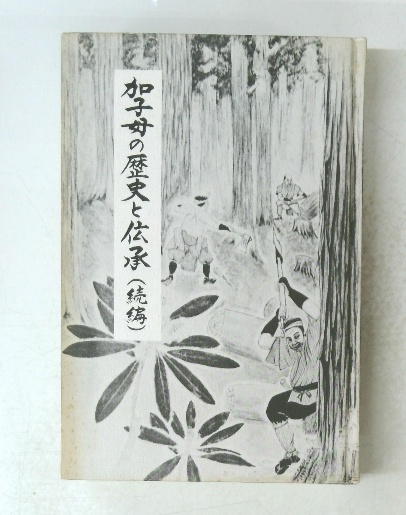 加子母の歴史と伝承
(続編)